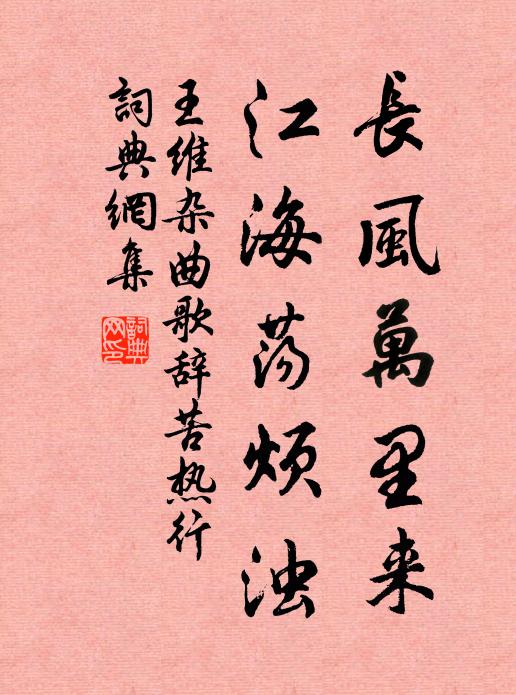 長風萬里来
江海荡烦浊
王維杂曲歌辞苦热行
詞典網集
詞典网印